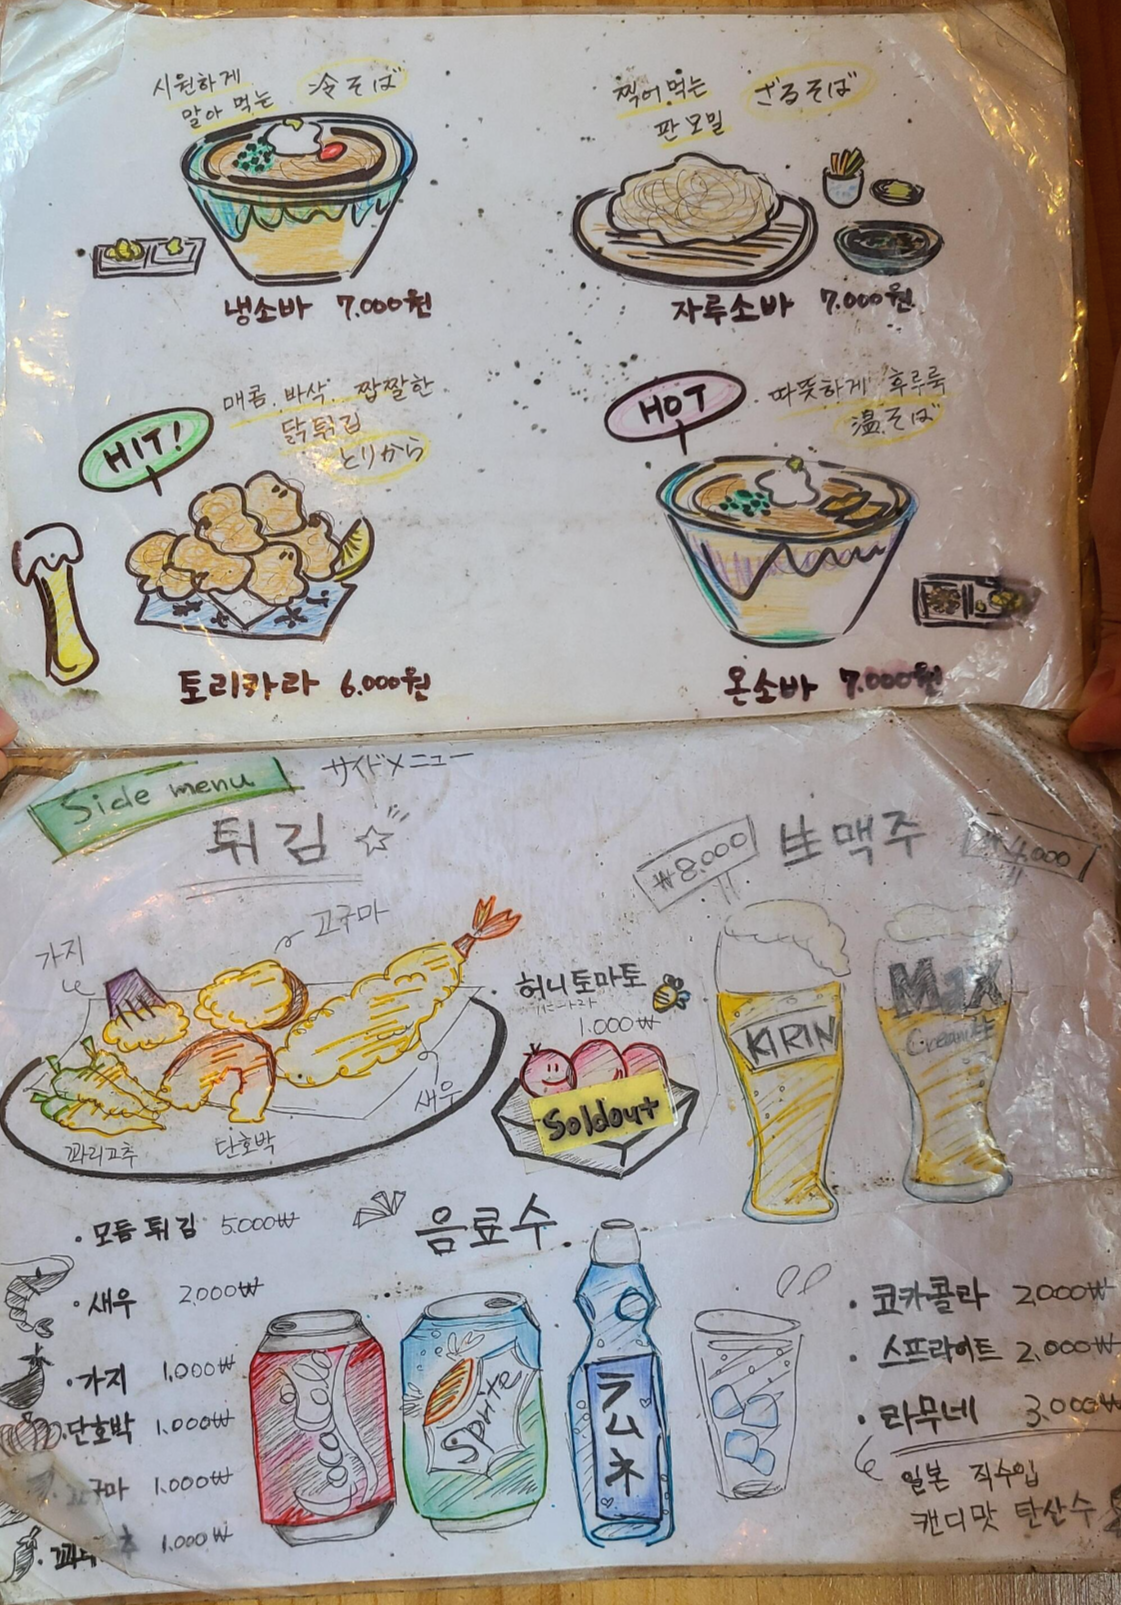 시원하게
말아 먹는
冷そば
냉소바 7.000원
찍어 먹는
판 모밀
ざるそば
자루소바 7.000원
HIT!
매콤. 바삭. 짭짤한
닭튀김
とりから
토리카라 6.000원
HOT
따뜻하게 후루룩
温そば
온소바 7.000원
Side menu
サイドメニュー
튀김
가지
고구마
새우
단호박
꽈리고추
허니토마토
1.000₩
Soldout
生맥주
₩8.000
₩4.000
KIRIN
Max
Cream生
· 모듬 튀김 5.000₩
· 새우 2.000₩
· 가지 1.000₩
· 단호박 1.000₩
구마 1.000₩
1.000₩
음료수
Sprite
ラムネ
· 코카콜라 2.000₩
· 스프라이트 2.000₩
· 라무네 3.000₩
일본 직수입
캔디맛 탄산수